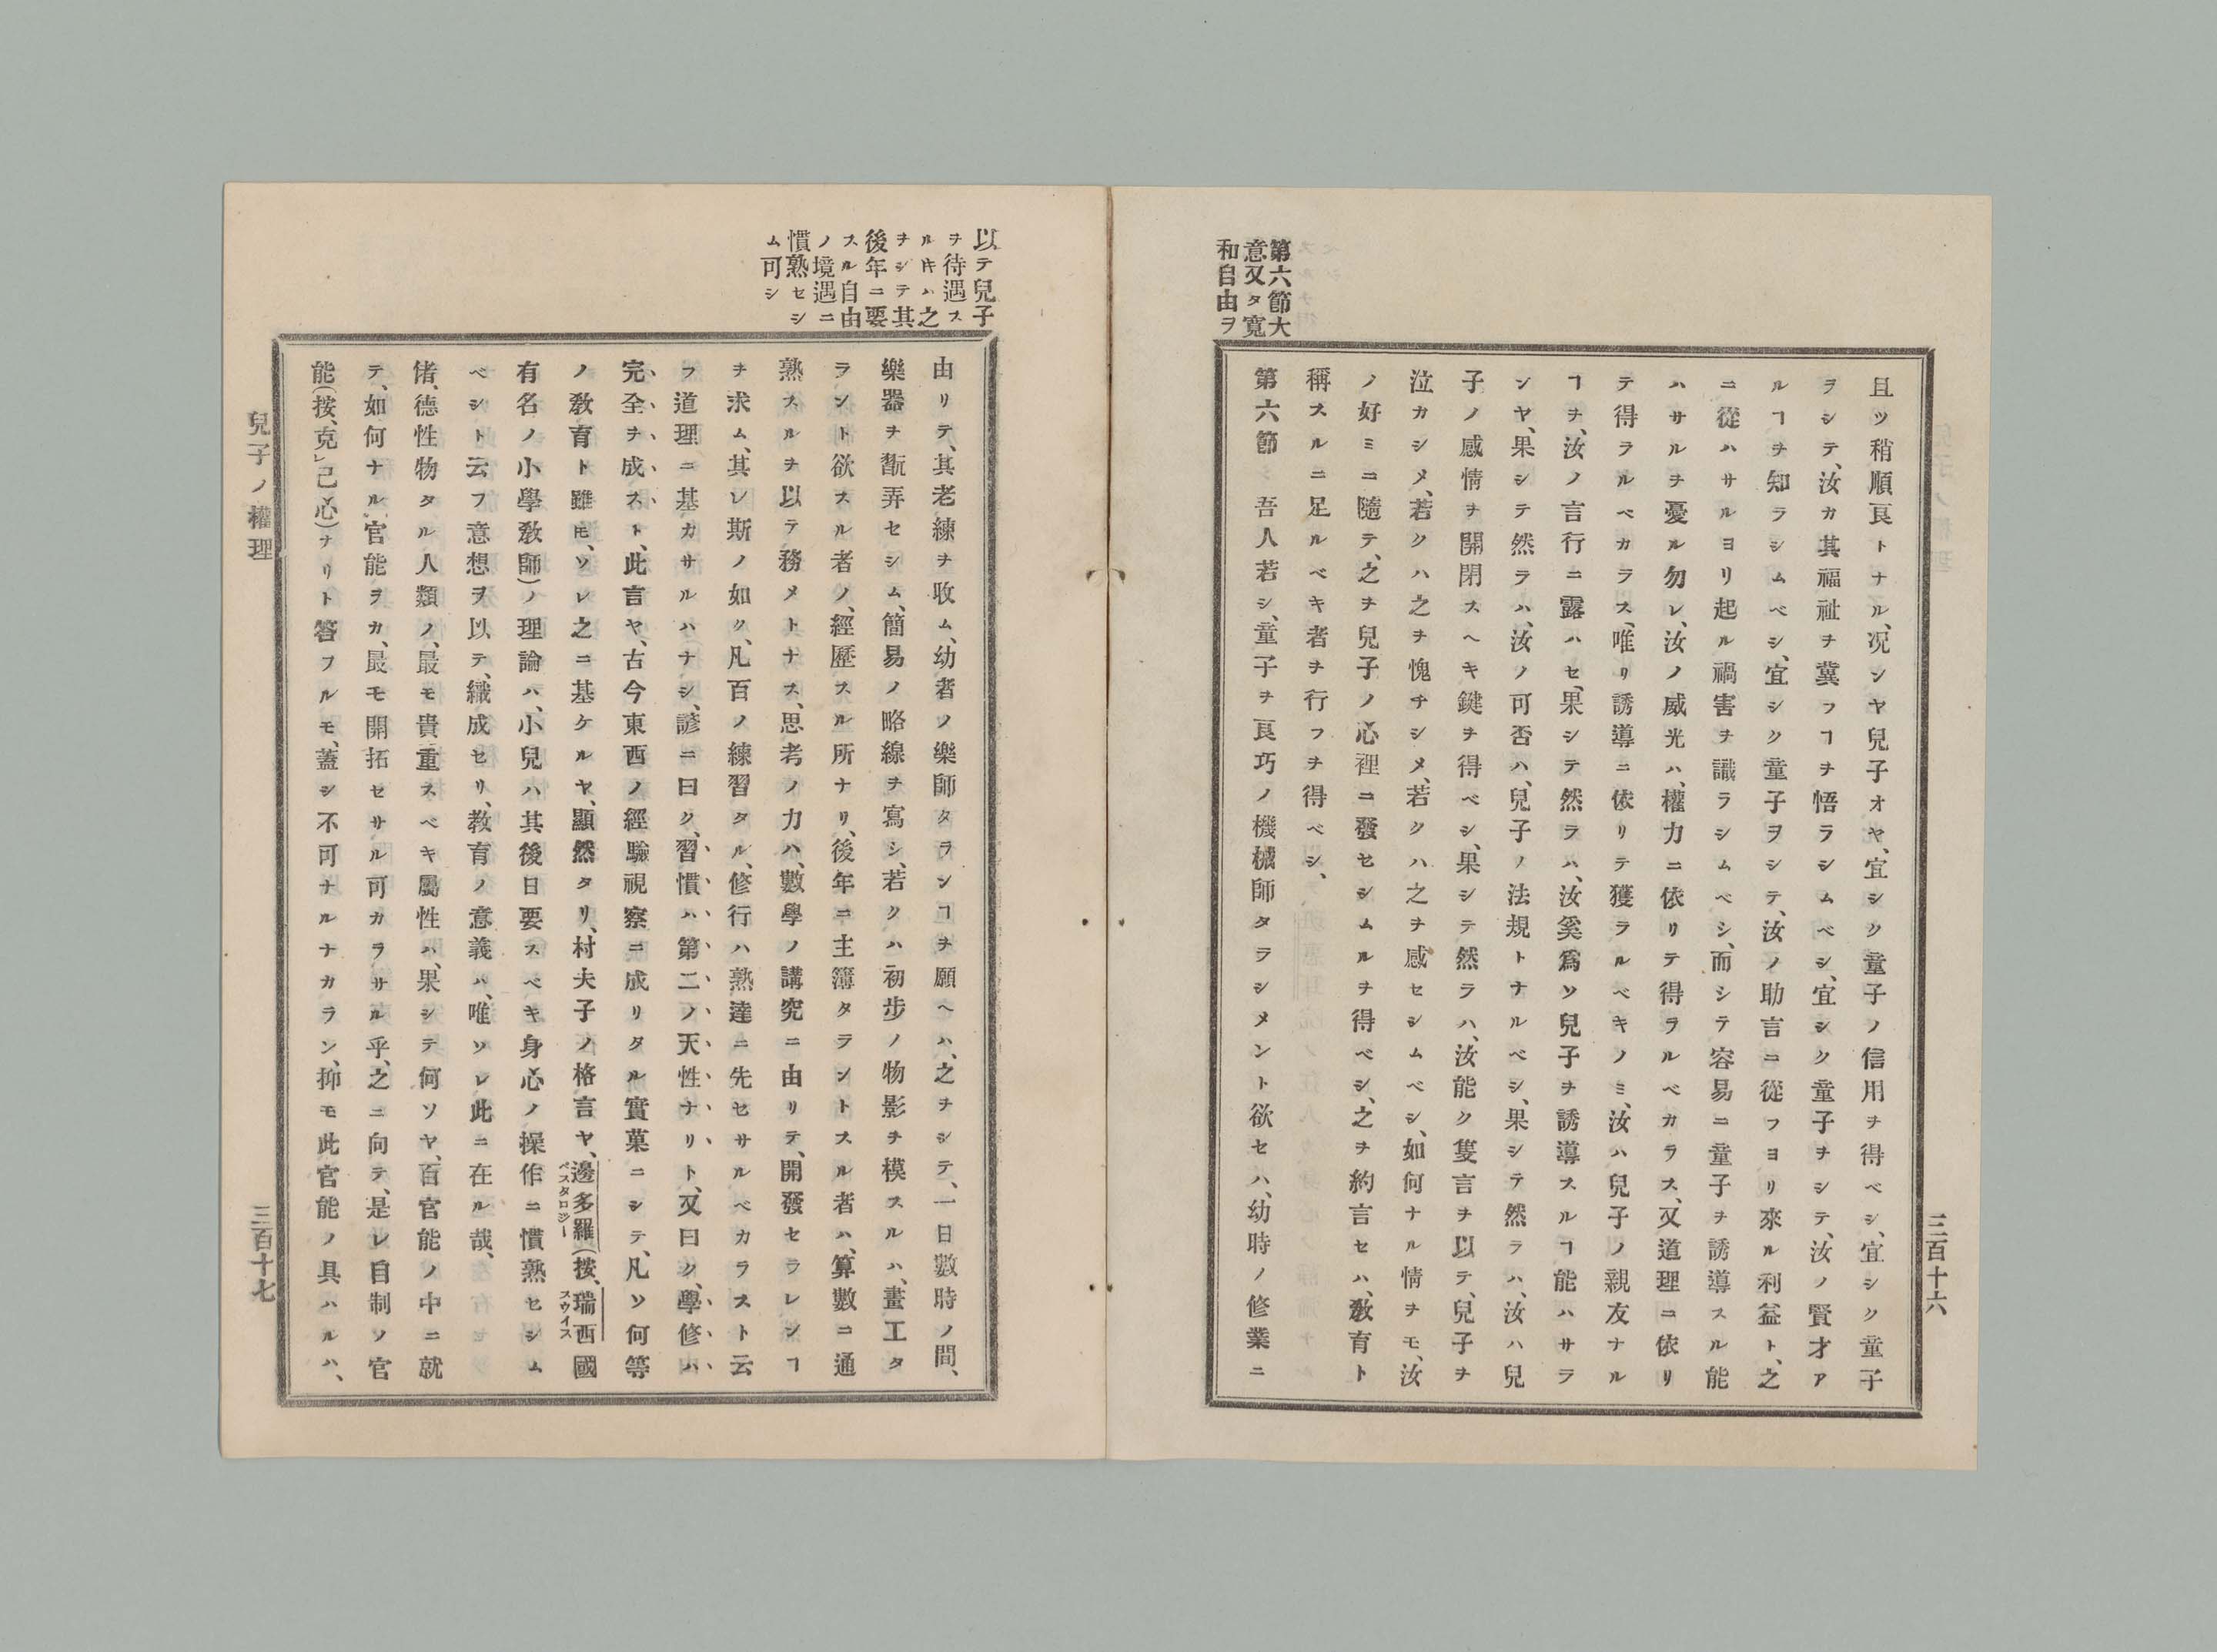 三百十六
且ツ稍順良トナル、况シヤ兒子オヤ、宜シク童子ノ信用ヲ得ベシ、宜シク童子
ヲシテ、汝カ其福祉ヲ冀フヿヲ悟ラシムベシ、宜シク童子ヲシテ、汝ノ賢才ア
ルヿヲ知ラシムベシ、宜シク童子ヲシテ、汝ノ助言ニ從フヨリ來ル利益ト、之
ニ從ハサルヨリ起ル禍害ヲ識ラシムベシ、而シテ容易ニ童子ヲ誘導スル能
ハサルヲ憂ル勿レ、汝ノ威光ハ、權力ニ依リテ得ラルベカラス、又道理ニ依リ
テ得ラルベカラス、唯リ誘導ニ依リテ獲ラルベキノミ、汝ハ兒子ノ親友ナル
ヿヲ、汝ノ言行ニ露ハセ、果シテ然ラハ、汝奚爲ソ兒子ヲ誘導スルヿ能ハサラ
ンヤ、果シテ然ラハ、汝ノ可否ハ、兒子ノ法規トナルベシ、果シテ然ラハ、汝ハ兒
子ノ感情ヲ開閉スヘキ鍵ヲ得ベシ、果シテ然ラハ、汝能ク隻言ヲ以テ、兒子ヲ
泣カシメ、若クハ之ヲ愧チシメ、若クハ之ヲ感セシムベシ、如何ナル情ヲモ、汝
ノ好ミニ隨テ、之ヲ兒子ノ心裡ニ發セシムルヲ得ベシ、之ヲ約言セハ、敎育ト
稱スルニ足ルベキ者ヲ行フヲ得ベシ、
第六節大
意又タ寬
和自由ヲ
第六節　吾人若シ、童子ヲ良巧ノ機械師タラシメント欲セハ、幼時ノ修業ニ
以テ兒子
ヲ待遇ス
ル片ハ之
ヲシテ其
後年ニ要
スル自由
ノ境遇ニ
慣熟セシ
ム可シ
由リテ、其老練ヲ收ム、幼者ノ樂師タランヿヲ願ヘハ、之ヲシテ、一日數時ノ間、
樂器ヲ翫弄セシム、簡易ノ略線ヲ寫シ、若クハ初步ノ物影ヲ模スルハ、畫工タ
ラント欲スル者ノ、經歷スル所ナリ、後年ニ主簿タラントスル者ハ、算數ニ通
熟スルヲ以テ務メトナス、思考ノ力ハ、數學ノ講究ニ由リテ、開發セラレンヿ
ヲ求ム、其レ斯ノ如ク、凡百ノ練習タル、修行ハ熟達ニ先セサルベカラスト云
フ道理ニ基カサルハナシ、諺ニ曰ク、習慣ハ第二ノ天性ナリト、又曰ク、學修ハ
完全ヲ成スト、此言ヤ、古今東西ノ經驗視察ニ成リタル實菓ニシテ、凡ソ何等
ノ敎育ト雖モ、ソレ之ニ基ケルヤ、顯然タリ、村夫子ノ格言ヤ、邊多羅（按、瑞西國
ペスタロジー　スウイス
有名ノ小學敎師）ノ理論ハ、小兒ハ其後日要スベキ身心ノ操作ニ慣熟セシム
ベシト云フ意想ヲ以テ、織成セリ、敎育ノ意義ハ、唯ソレ此ニ在ル哉、
偖、德性物タル人類ノ、最モ貴重スベキ屬性ハ、果シテ何ソヤ、百官能ノ中ニ就
テ、如何ナル官能ヲカ、最モ開拓セサル可カラサル乎、之ニ向テ、是レ自制ソ官
能（按、克レ己心）ナリト答フルモ、蓋シ不可ナルナカラン、抑モ此官能ノ具ハルハ、
兒子ノ權理
三百十七